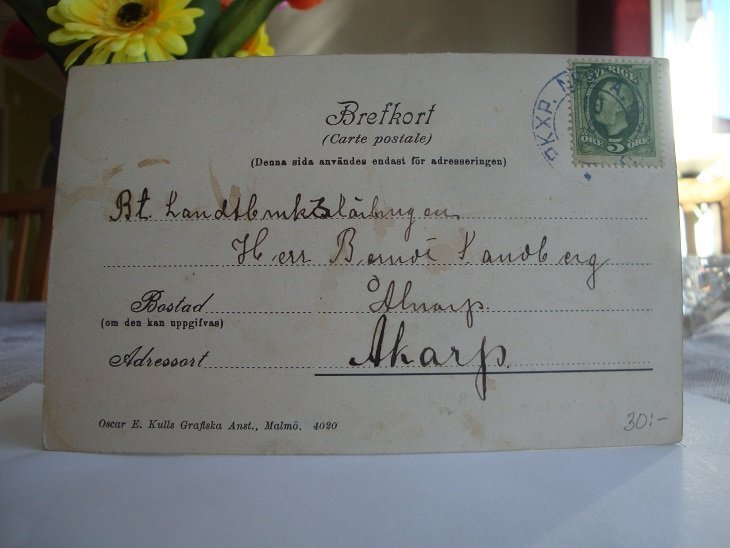 Brefkort
(Carte postale)
(Denna sida användes endast för adresseringen)
SVERIGE
ÖRE 5 ÖRE
PKXP. N
Herr Berndt Sandberg
Bostad Alnarp.
(om den kan uppgifvas)
Adressort Akarp.
Oscar E. Kulls Grafiska Anst., Malmö. 4020
30:-